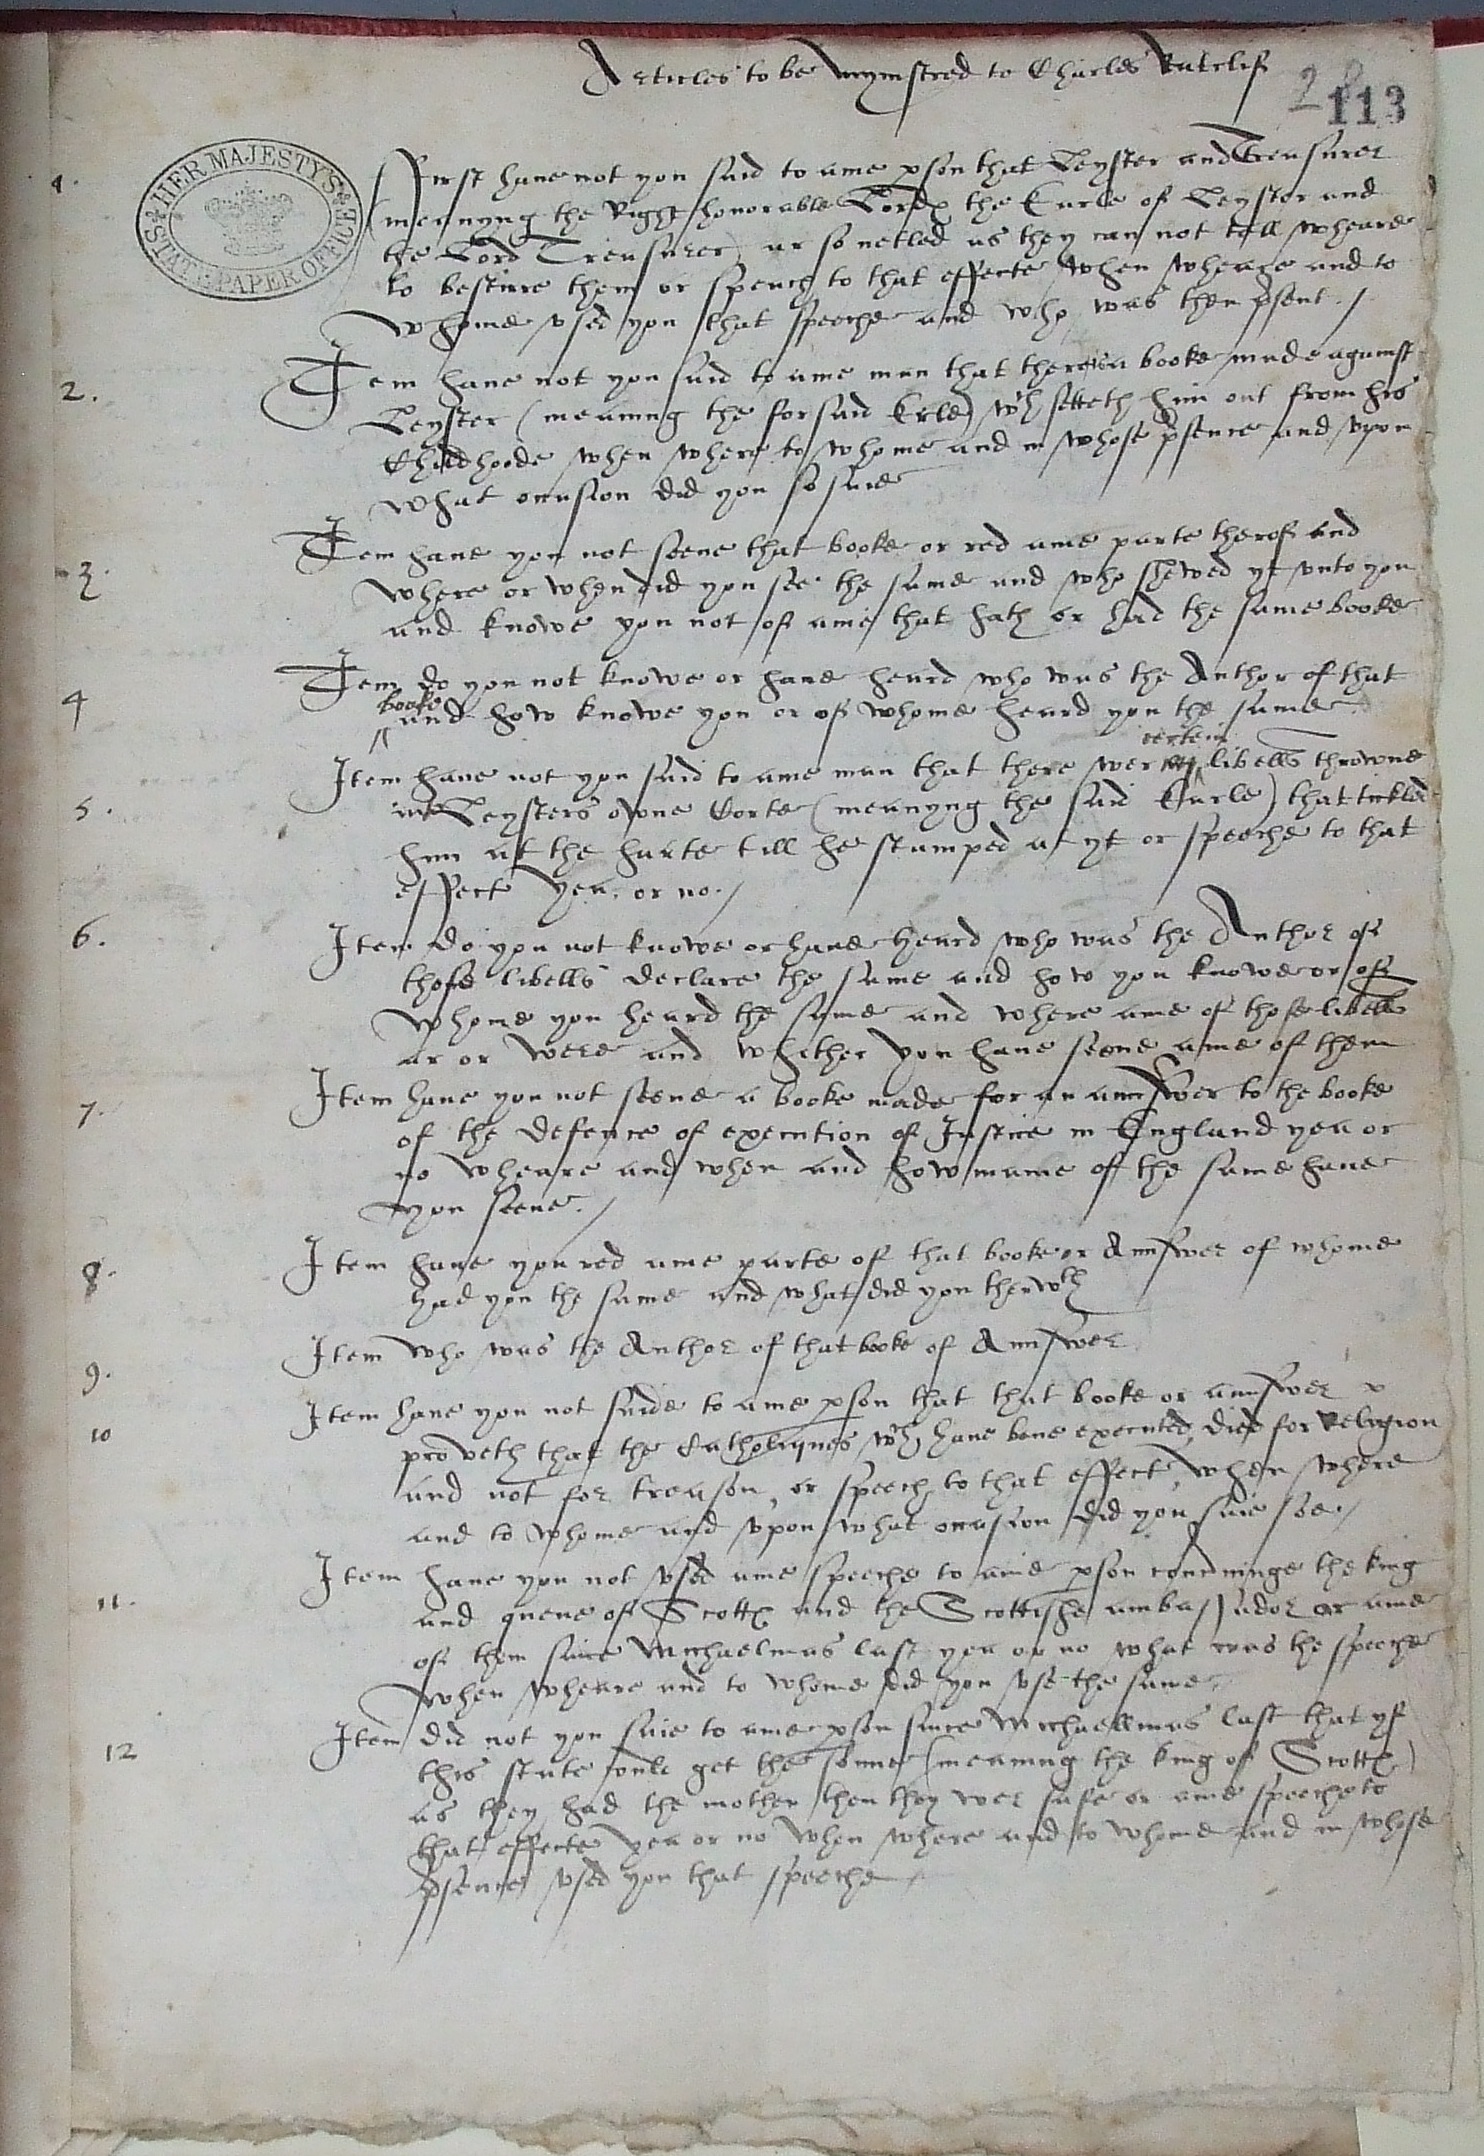 Articles to be mynistred to Charles Ratclif
28
113
HER MAJESTY'S STATE PAPER OFFICE
1. First have not you said to anie pson that Leyster and Treasurer
(meanyng the Right honorable Lordp the Earle of Leyster and
the Lord Treasurer) ar so netled as they can not tell wheare
to besturre them or speach to that effecte when wheare and to
whome vsed you that speeche and who was then psent./
2. Item have not you said to anie man that there is a booke made against
Leyster (meaning the forsaid Erle) wch setteth him out from his
Childhoode when where to whome and in whose psence and vpon
what occasion did you so saie
3. Item have you not seene that booke or red anie parte therof and
where or when did you see the same and who shewed yt vnto you
and knowe you not of anie that hath or had the same booke
4 Item do you not knowe or have heard who was the Author of that
booke
and how knowe you or of whome heard you the same.
certein
5. Item have not you said to anie man that there wer libells throwne
in Leysters owne Corte (meanyng the said Earle) that tickled
him at the harte till he stamped at yt or speeche to that
effect yea, or no./
6. Item do you not knowe or have heard who was the Author of
those libells declare the same and how you knowe or of
whome you heard the same and where anie of those libells
ar or were and whither you have seene anie of them
7. Item have you not seene a booke made for an aunswer to the booke
of the defence of execution of Justice in England yea or
no wheare and when and how manie of the same have
you seene./
8. Item have you red anie parte of that booke or Aunswer of whome
had you the same and what did you therwth
9. Item who was the Author of that booke of Aunswer
10 Item have you not saide to anie pson that that booke or aunswer
proveth that the Catholiques wch have bene executed, died for Religion
and not for treason, or speech to that effect when where
and to whome and vpon what occasion did you saie soe./
11. Item have you not vsed anie speeche to anie pson concerninge the king
and quene of Scottp and the Scottishe ambassador or anie
of them since Michaelmas last yea or no what was the speeche
when wheare and to whome did you vse the same./
12 Item did not you saie to anie pson since Michaellmas last that yf
this state could get the sonne (meaning the king of Scottp)
as they had the mother then they wer safe or anie speeche to
that effecte yea or no when where and to whome and in whose
psence vsed you that speeche./